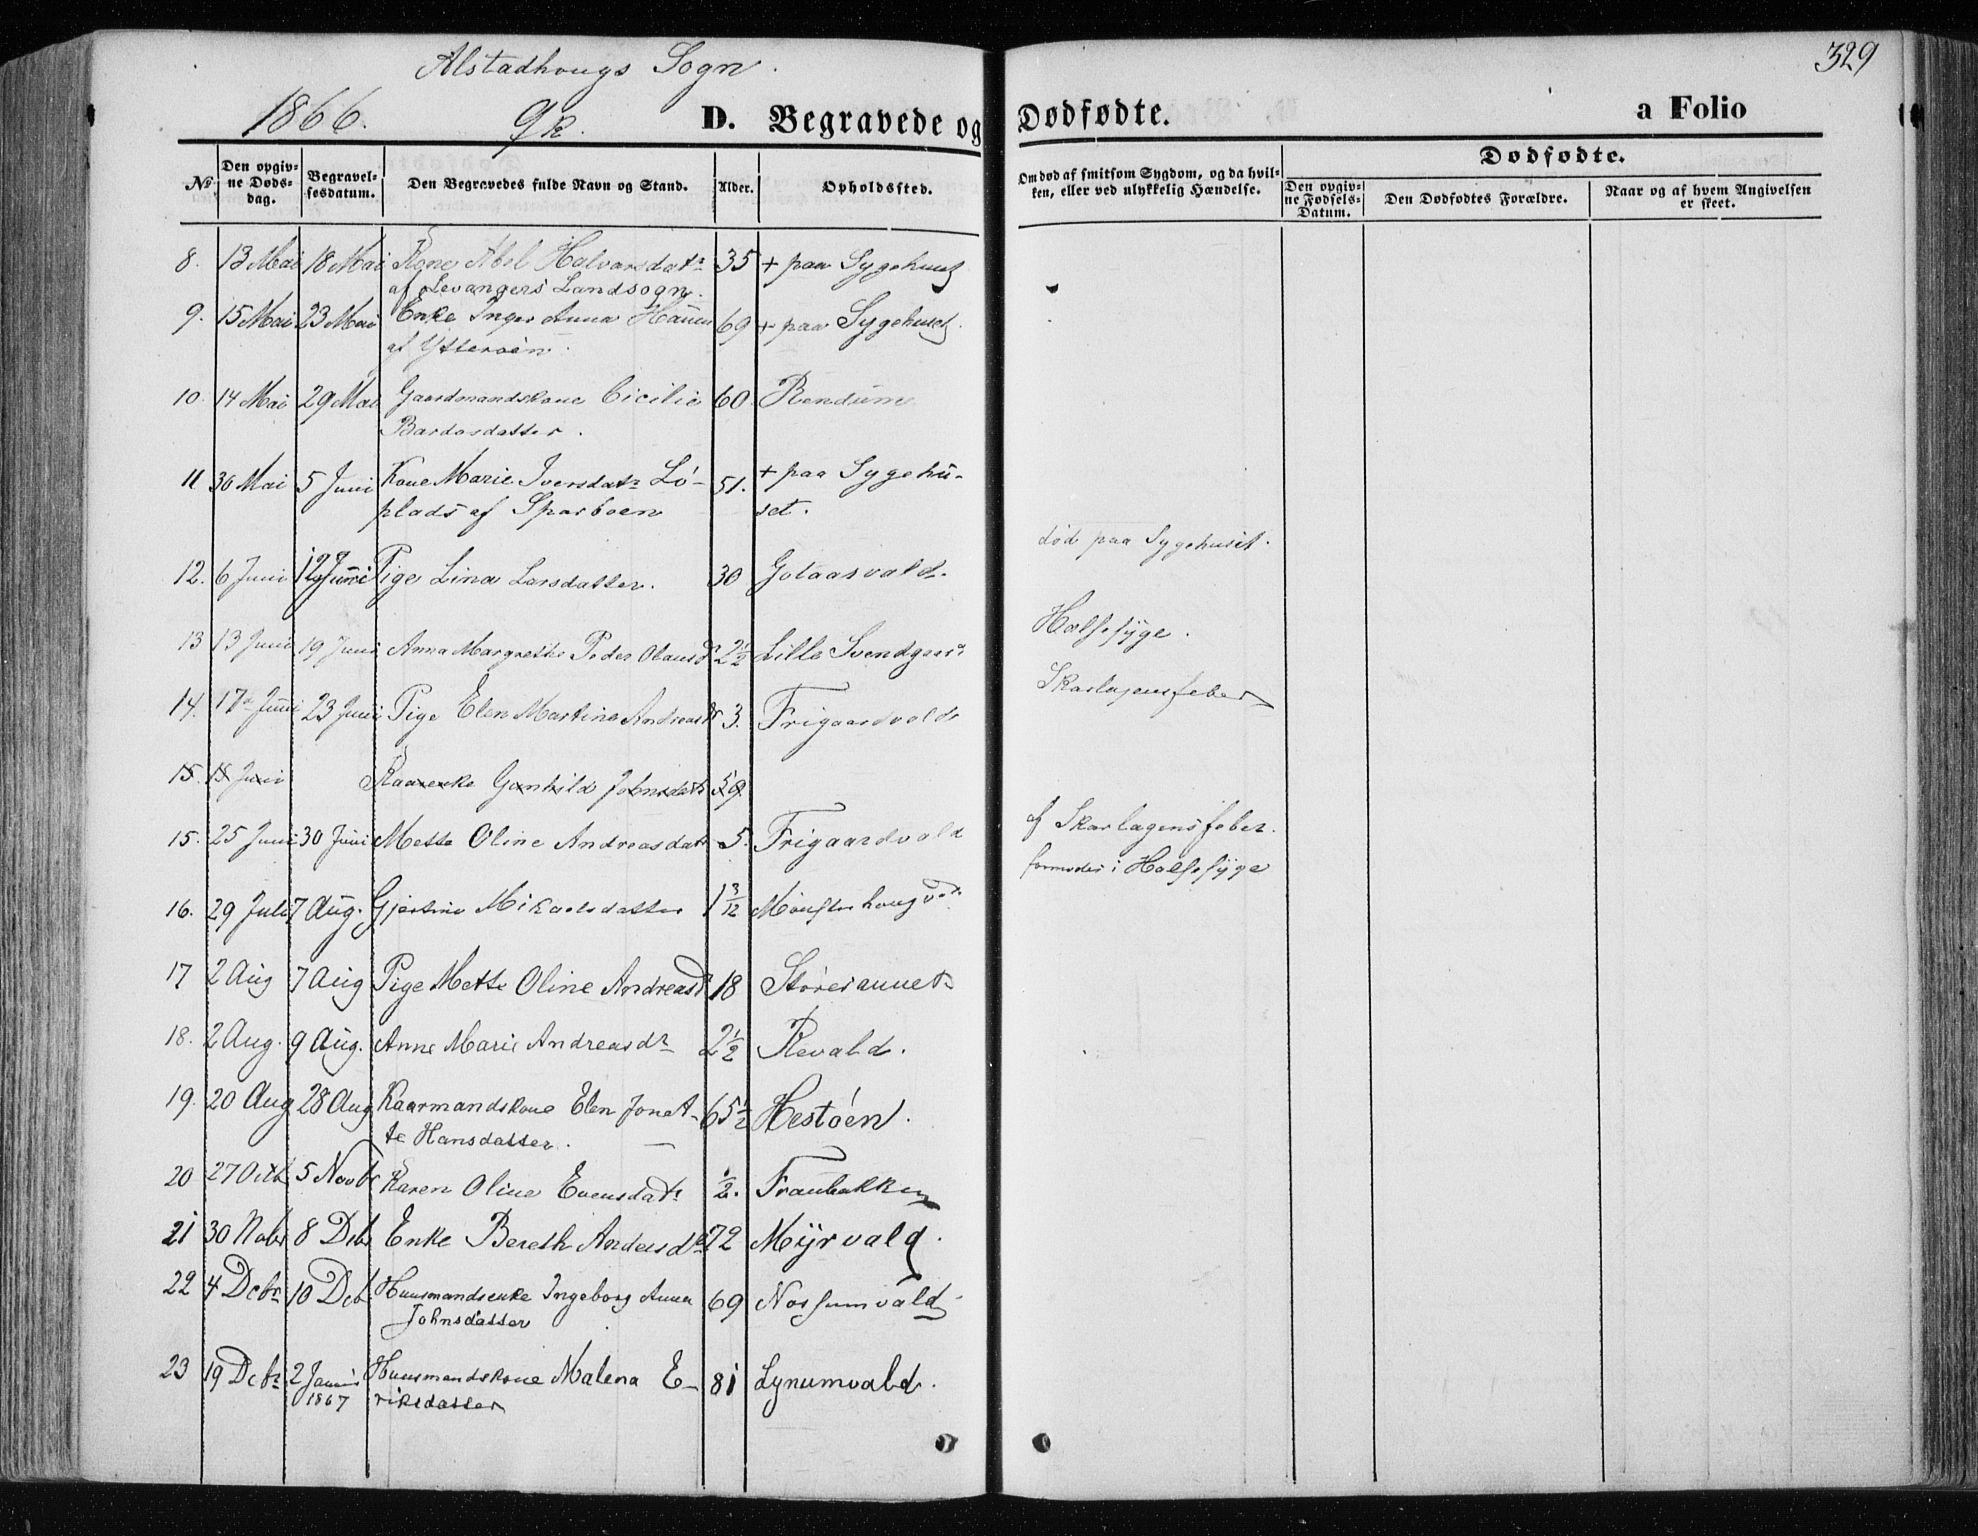 Alstadhougs Sogn.
329
1866. Qk. D. Begravede og Dødfødte. a Folio
No. Den opgivne Døds-dag. Begravelsesdatum. Den Begravedes fulde Navn og Stand. Alder. Opholdssted. Om død af smitsom Sygdom, og da hvilken, eller ved ulykkelig Hændelse. Dødfødte. Den opgivne Fødsels-Datum. Den Dødfødtes Forældre. Naar og af hvem Angivelsen er skeet.
8. 13 Mai 18 Mai Kone Abel Halvarsdatr 35 + paa Sygehuset
af Levangers Landsogn.
9. 15 Mai 23 Mai Enke Inger Anna 69 + paa Sygehuset.
af Ytterøen.
10. 14 Mai 29 Mai Gaardmandskone Cicilie 60 Rendum
Bardosdatter.
11 30 Mai 5 Juni Kone Marie Iversdatr Lö- 51. + paa Sygehu-
plads af Sparboen set.
død paa Sygehuset.
12. 6 Juni 12 Juni Pige Lina Larsdatter. 30 Golaasvald.
13 13 Juni 19 Juni Anna Margrethe Peder Olausdr 2½ Lille Svendgaard Halssyge.
14. 17de Juni 23 Juni Pige Elen Martine Andreasdr 3. Frigaardvald Skarlagensfeber
15. 18 Juni Kaarenke Gunhild Johnsdatr 59
15. 25 Juni 30 Juni Mette Oline Andreasdatr 5. Frigaardvald af Skarlagensfeber.
formodes i Halssyge
16. 29 Juli 7 Aug. Gjertine Mikaelsdatter 1 3/12
17 2 Aug 7 Aug Pige Mette Oline Andreasdr 18
18. 2 Aug. 9 Aug. Anne Marie Andreasdr 2½ Revald.
19. 20 Aug 28 Aug Kaarmandskone Elen Jonet- 65½ Hestöen.
te Hansdatter.
20 27 Octb 5 Novbr Karen Oline Evensdatr ½. Traubakken
21 30 Nobr 8 Debr Enke Bereth Andersdr 72 Myrvald.
22 4 Debr 10 Debr Huusmandsenke Ingeborg Anna 69 Nossumvald
Johnsdatter
23 19 Debr 2 Januar Huusmandskone Malena E- 81 Lynumvald.
1867 riksdatter